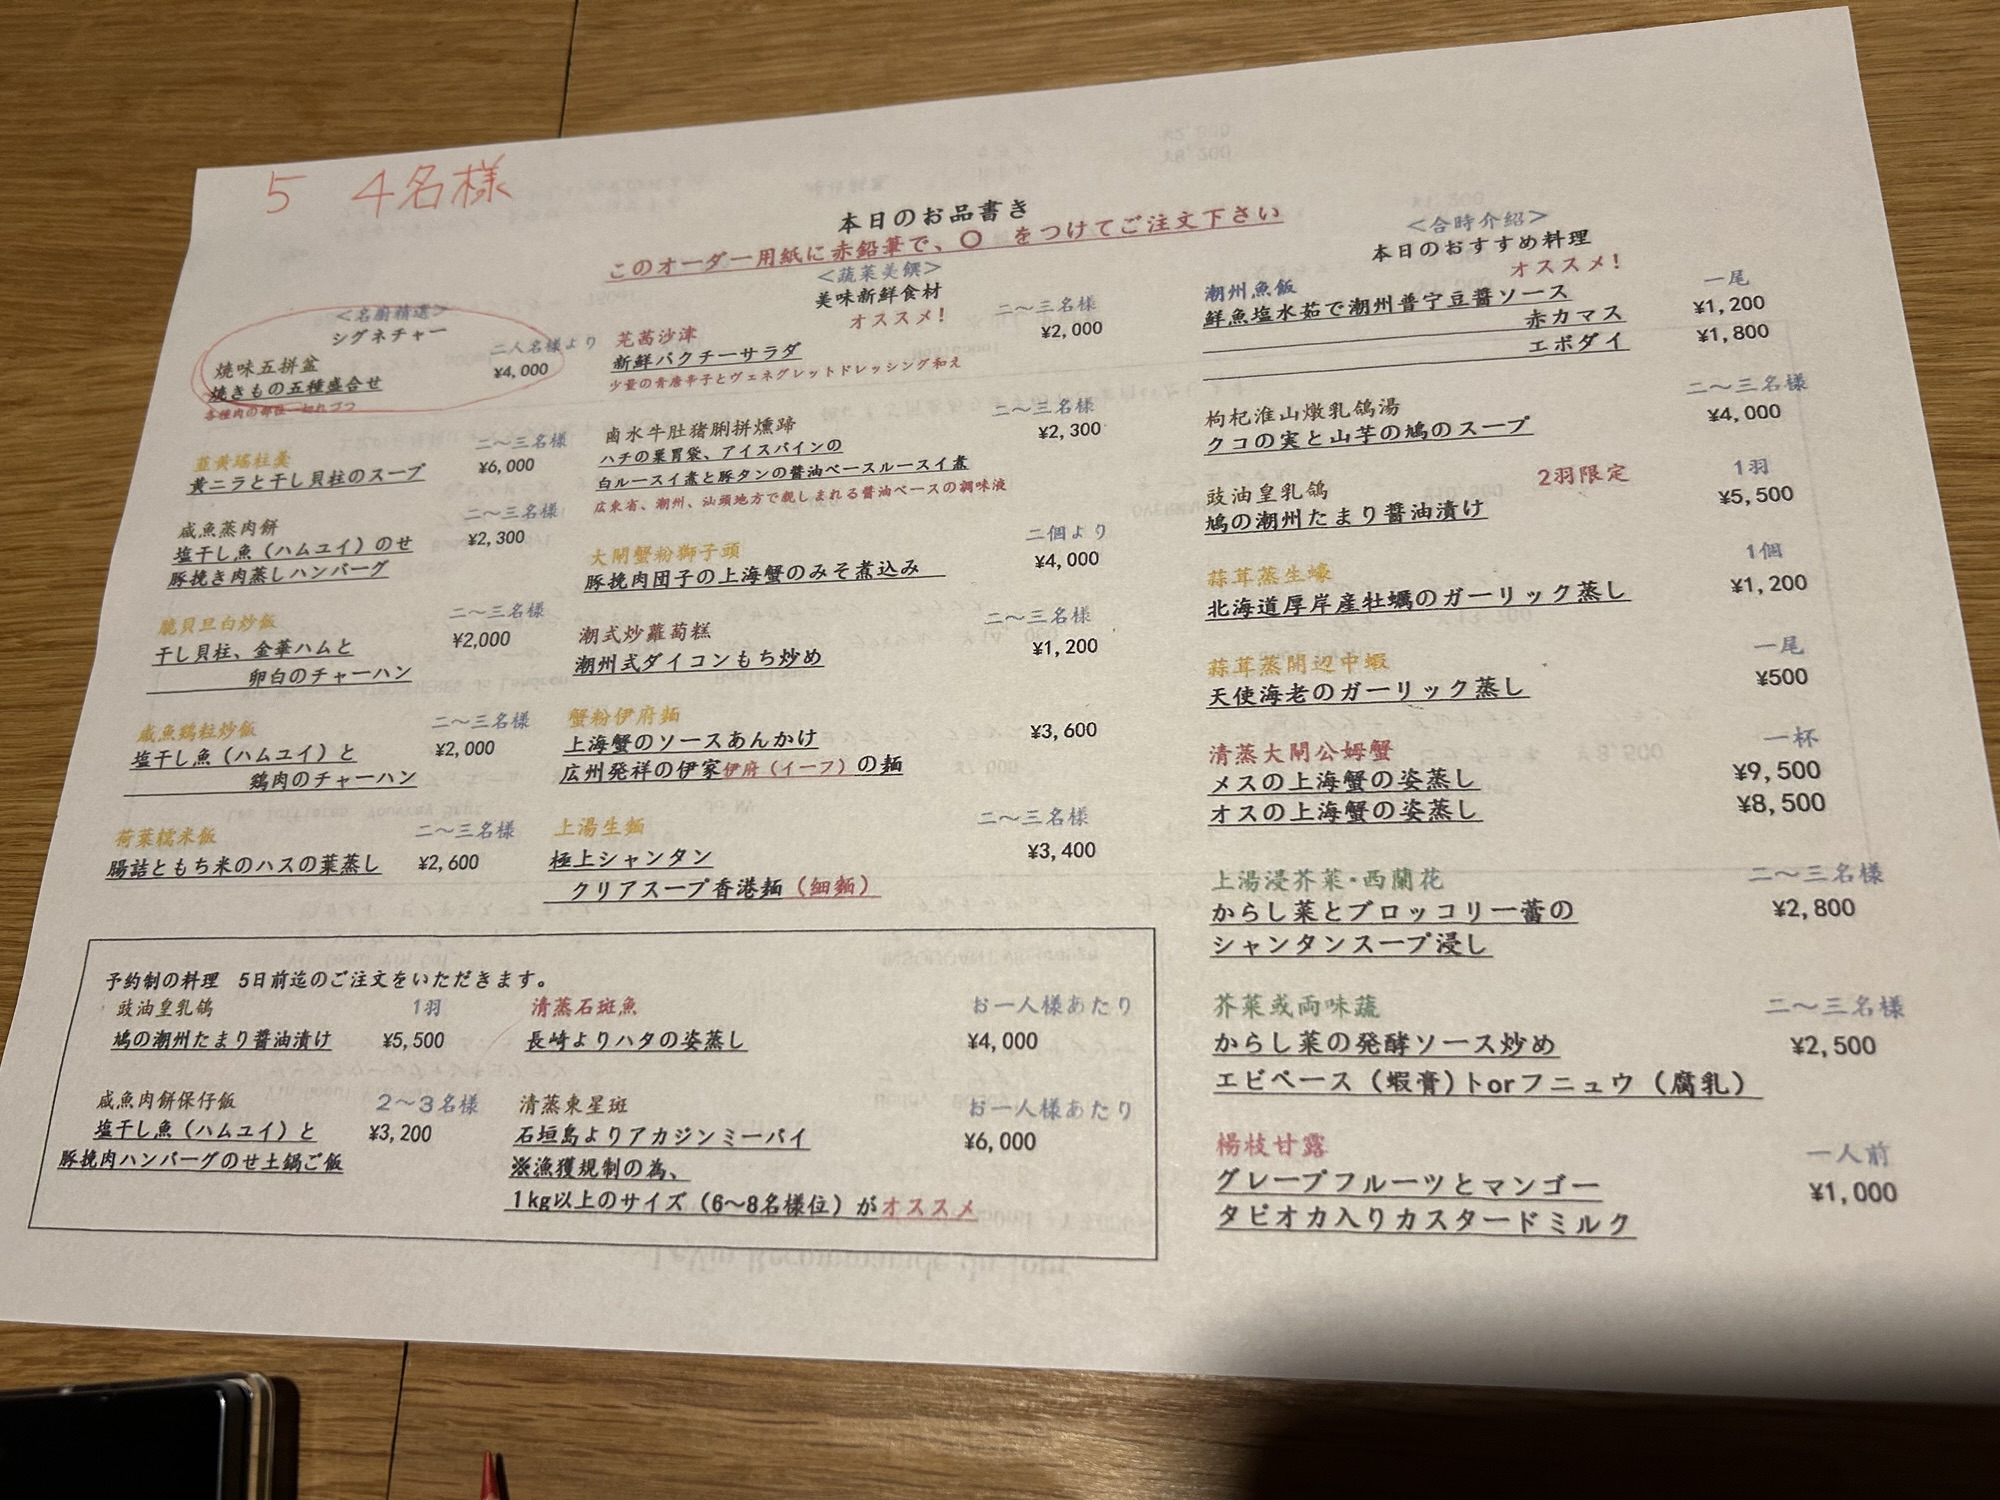 5 4名様
本日のお品書き
このオーダー用紙に赤鉛筆で、〇 をつけてご注文下さい
<名廚精選>
シグネチャー
焼味五拼盆 二人名様より
焼きもの五種盛合せ ¥4,000
各種肉の部位一切れづつ
韮黄瑤柱羹 二〜三名様
黄ニラと干し貝柱のスープ ¥6,000
咸魚蒸肉餅 二〜三名様
塩干し魚（ハムユイ）のせ ¥2,300
豚挽き肉蒸しハンバーグ
脆貝旦白炒飯 二〜三名様
干し貝柱、金華ハムと ¥2,000
卵白のチャーハン
咸魚鶏粒炒飯 二〜三名様
塩干し魚（ハムユイ）と ¥2,000
鶏肉のチャーハン
荷葉糯米飯 二〜三名様
腸詰ともち米のハスの葉蒸し ¥2,600
<蔬菜美饌>
美味新鮮食材
オススメ！
芫茜沙津 二〜三名様
新鮮パクチーサラダ ¥2,000
少量の青唐辛子とヴェネグレットドレッシング和え
鹵水牛肚猪脷拼燻蹄 二〜三名様
ハチの巣胃袋、アイスバインの ¥2,300
白ルースイ煮と豚タンの醬油ベースルースイ煮
広東省、潮州、汕頭地方で親しまれる醬油ベースの調味液
大閘蟹粉獅子頭 二個より
豚挽肉団子の上海蟹のみそ煮込み ¥4,000
潮式炒蘿蔔糕 二〜三名様
潮州式ダイコンもち炒め ¥1,200
蟹粉伊府麺
上海蟹のソースあんかけ ¥3,600
広州発祥の伊家伊府（イーフ）の麺
上湯生麺 二〜三名様
極上シャンタン ¥3,400
クリアスープ香港麺（細麺）
<合時介紹>
本日のおすすめ料理
オススメ！
潮州魚飯 一尾
鮮魚塩水茹で潮州普宁豆醬ソース
赤カマス ¥1,200
エボダイ ¥1,800
枸杞淮山燉乳鴿湯 二〜三名様
クコの実と山芋の鳩のスープ ¥4,000
豉油皇乳鴿 2羽限定 1羽
鳩の潮州たまり醬油漬け ¥5,500
蒜茸蒸生蠔 1個
北海道厚岸産牡蠣のガーリック蒸し ¥1,200
蒜茸蒸開辺中蝦 一尾
天使海老のガーリック蒸し ¥500
清蒸大閘公姆蟹 一杯
メスの上海蟹の姿蒸し ¥9,500
オスの上海蟹の姿蒸し ¥8,500
上湯浸芥菜・西蘭花 二〜三名様
からし菜とブロッコリー蕾の ¥2,800
シャンタンスープ浸し
芥菜或両味蔬 二〜三名様
からし菜の発酵ソース炒め ¥2,500
エビペース（蝦膏）トorフニュウ（腐乳）
楊枝甘露 一人前
グレープフルーツとマンゴー ¥1,000
タピオカ入りカスタードミルク
予約制の料理 5日前迄のご注文をいただきます。
豉油皇乳鴿 1羽
鳩の潮州たまり醬油漬け ¥5,500
咸魚肉餅保仔飯 2〜3名様
塩干し魚（ハムユイ）と ¥3,200
豚挽肉ハンバーグのせ土鍋ご飯
清蒸石斑魚 お一人様あたり
長崎よりハタの姿蒸し ¥4,000
清蒸東星斑 お一人様あたり
石垣島よりアカジンミーバイ ¥6,000
※漁獲規制の為、
1kg以上のサイズ（6〜8名様位）がオススメ